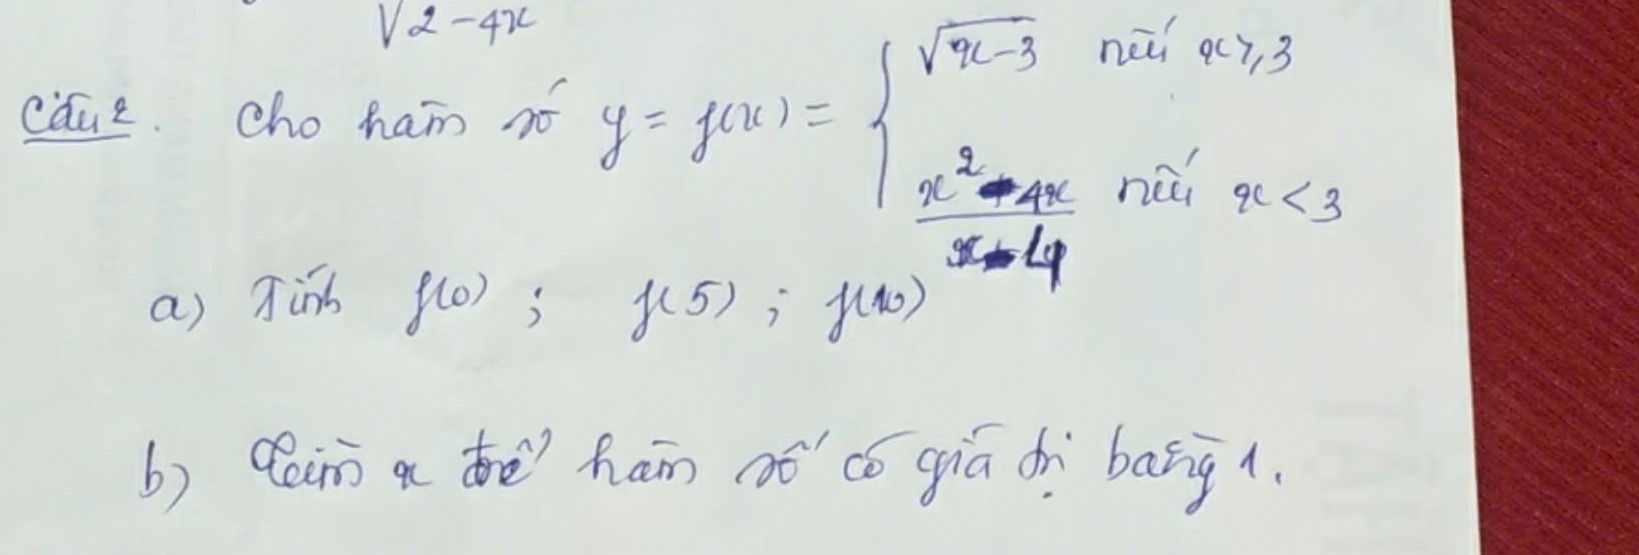 √2-4x
Câu 2. Cho hàm số y = f(x) = { √x-3 nếu x ≥ 3
x² - 4x / x - 4 nếu x < 3
a) Tính f(0) ; f(5) ; f(10)
b) Tìm x để hàm số có giá trị bằng 1.